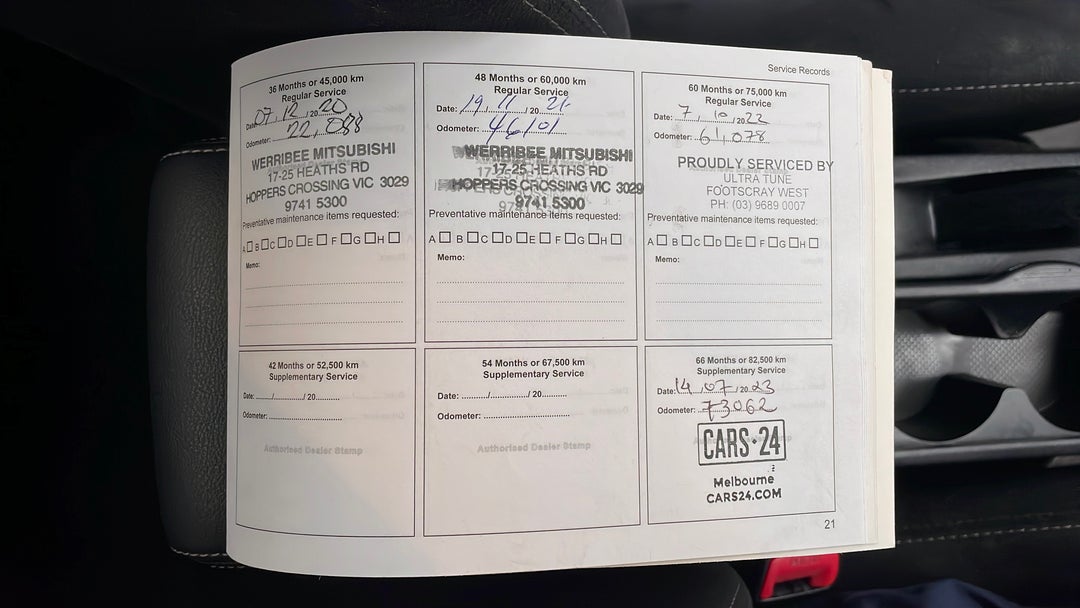 Service Records
36 Months or 45,000 km
Regular Service
Date: 07, 12, 20 20
Odometer: 22,088
WERRIBEE MITSUBISHI
17-25 HEATHS RD
HOPPERS CROSSING VIC 3029
9741 5300
Preventative maintenance items requested:
A B C D E F G H
Memo:
48 Months or 60,000 km
Regular Service
Date: 19, 11 / 20 21
Odometer: 46101
WERRIBEE MITSUBISHI
17-25 HEATHS RD
HOPPERS CROSSING VIC 3029
9741 5300
Preventative maintenance items requested:
A B C D E F G H
Memo:
60 Months or 75,000 km
Regular Service
Date: 7, 10 / 20 22
Odometer: 61,078
PROUDLY SERVICED BY
ULTRA TUNE
FOOTSCRAY WEST
PH: (03) 9689 0007
Preventative maintenance items requested:
A B C D E F G H
Memo:
42 Months or 52,500 km
Supplementary Service
Date: ....../............/ 20.........
Odometer: ..............................
Authorised Dealer Stamp
54 Months or 67,500 km
Supplementary Service
Date: ......../............./ 20.........
Odometer: ..............................
Authorised Dealer Stamp
66 Months or 82,500 km
Supplementary Service
Date: 14, 07, 20 23
Odometer: 73062
CARS 24
Melbourne
CARS24.COM
21